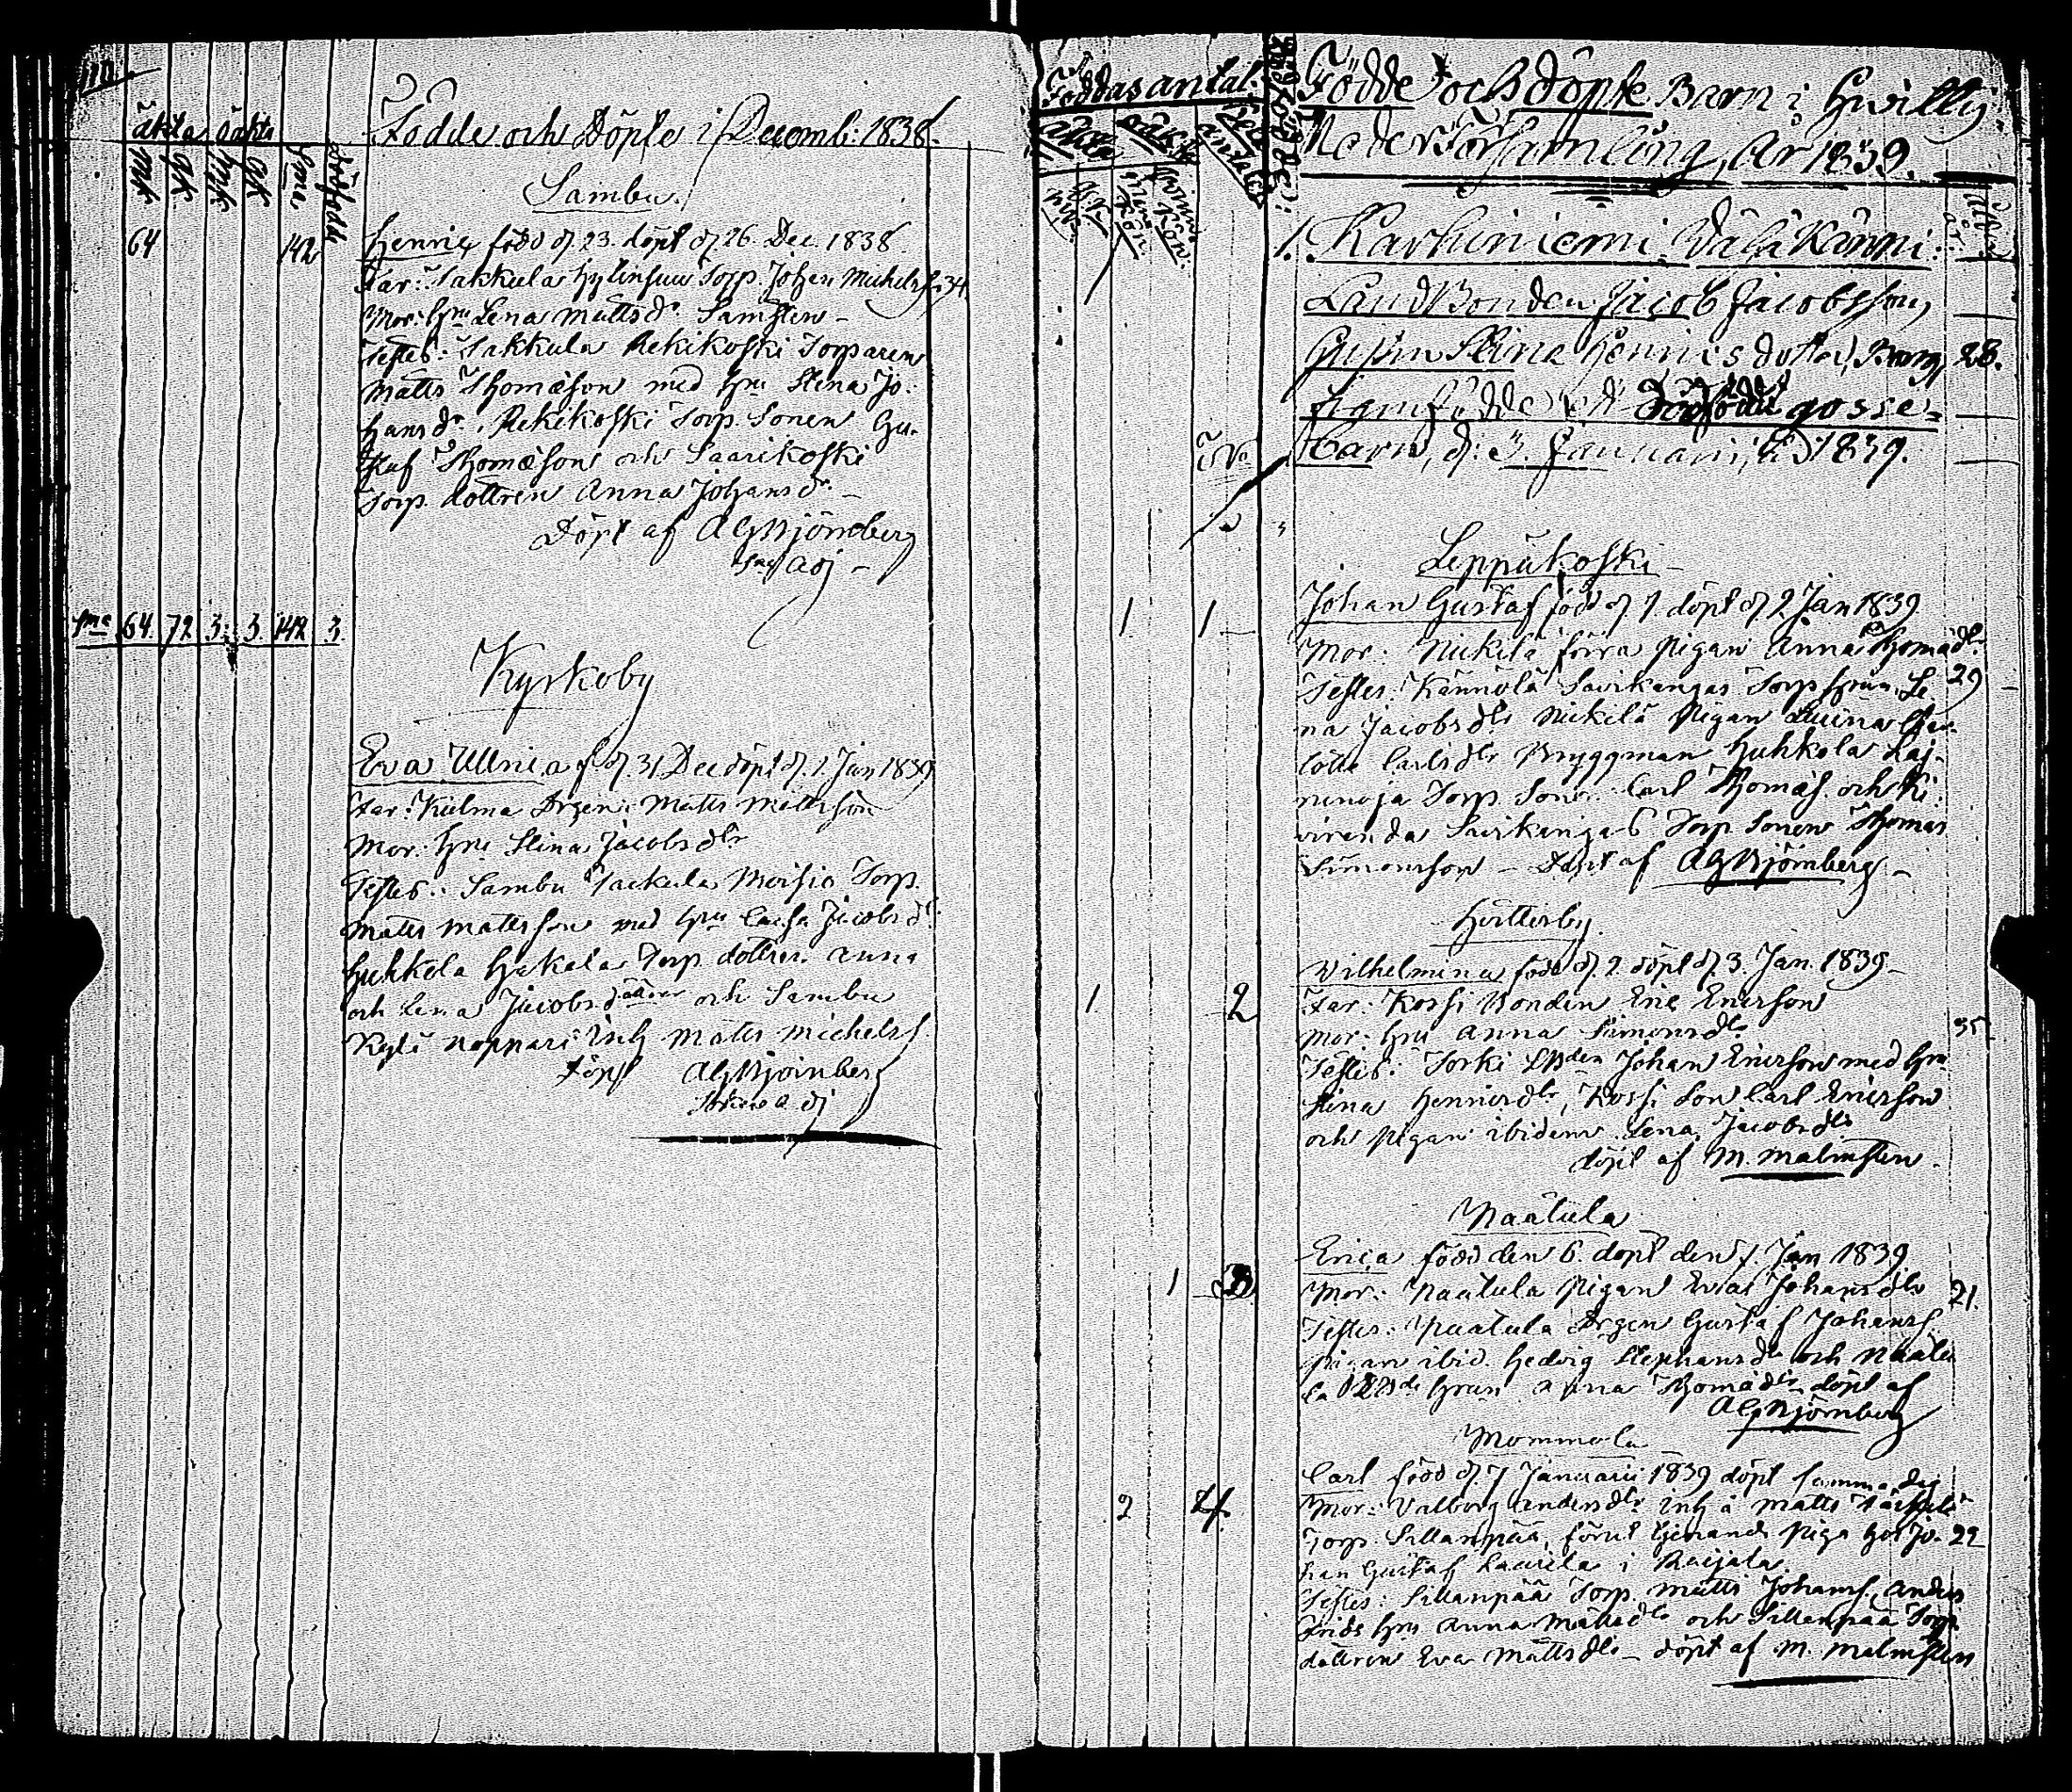 äkta oäkta
mk. qk. mk. qk. Sma. dödfödde
Födde och Döpte i Decemb: 1838.
Sambu.
64 142
Henric född d. 23. döpt d. 26. Dec. 1838
Far: Sakkula Torp. Johan Michelss. 34.
Mor: hu Lena Mattsdr. Samsten -
Testes: Sakkula Rekikoski Torparen
Matts Thomæson med hu Stina Jo-
hansdr. Rekikoski Torp. Sonen Gu-
staf Thomæson och Saarikoski
Torp. dottren Anna Johansdr. -
Döpt af A G Björnberg
Adj -
Sma 64. 72 3. 3. 142 3.
Kyrkoby
Eva Ulrica f. d. 31 Dec döpt d. 1. Jan 1839
Far: Kulma Drgen: Matts Mattsson
Mor: hu Stina Jacobsdr
Testes: Sambu Moisio Torp.
Matts Mattsson med hu Caisa Jacobsdr.
Huhkola Hakala Torp. dottrer. Anna
och Lena Jacobsdöttrar och Sambu
Kylä Noppari Inh Matts Michelss.
döpt A G Björnberg
adj
Föddas antal.
äkta oäkta Hela antalet
Födde och döpte Barn i Hvittis
Moder Församling, År 1839.
1. Karhiniemi Välikänni:
Landbonden Jacob Jacobsson,
Hustrun Stina Henricsdotter, 28.
dödfödde gosse-
Barn, d: 3. Januarii, 1839.
Leppäkoski -
Johan Gustaf född d. 1. döpt d. 2 Jan 1839
1. 1
Mor: Nickilä förra Pigan Anna Thomædr.
Testes: Kännölä Savikangas Torp hrun Le- 29
na Jacobsdr Nickilä Pigan Lovisa Char-
lotta Carlsdr Bryggman Huhkola
Torp Sonen Carl Thomæs. och Ki-
viranda Savikangas Torp Sonen Thomas
Simonsson - Döpt af A G Björnberg -
Hvitterby.
Wilhelmina född d. 2. döpt d. 3. Jan. 1839 -
1 2
Far: Kossi Bonden Eric Ericsson
Mor: hu Anna Simonsdr 35
Testes: Torki LBden Johan Ericsson med hu
Stina Henricsdr, Kossi Son Carl Ericsson
och Pigan ibidem Lena Jacobsdr
döpt af M. Malmsten.
Naatula
Erica född den 6. döpt den 7. Jan 1839.
1 3
Mor: Naatula Pigan Eva Johansdr 21.
Testes: Naatula Drgen Gustaf Johanss
Pigan ibid. Hedvig Stephansdr och Naatu
la hrun Anna Thomædr döpt af
A G Björnberg
Mommola
Carl född d. 7 Januarii 1839 döpt samma dag
2 4.
Mor: Valborg Andersdr Inh å Matts
Torp. Sillanpää, förut tjenande Piga hos Jo- 22
han Gustaf Laurila i Raijala
Testes: Sillanpää Torp. Matts Johanss. Anders
Frids hu Anna Mattsdr och Sillanpää Torp.
dottren Eva Mattsdr - döpt af M. Malmsten